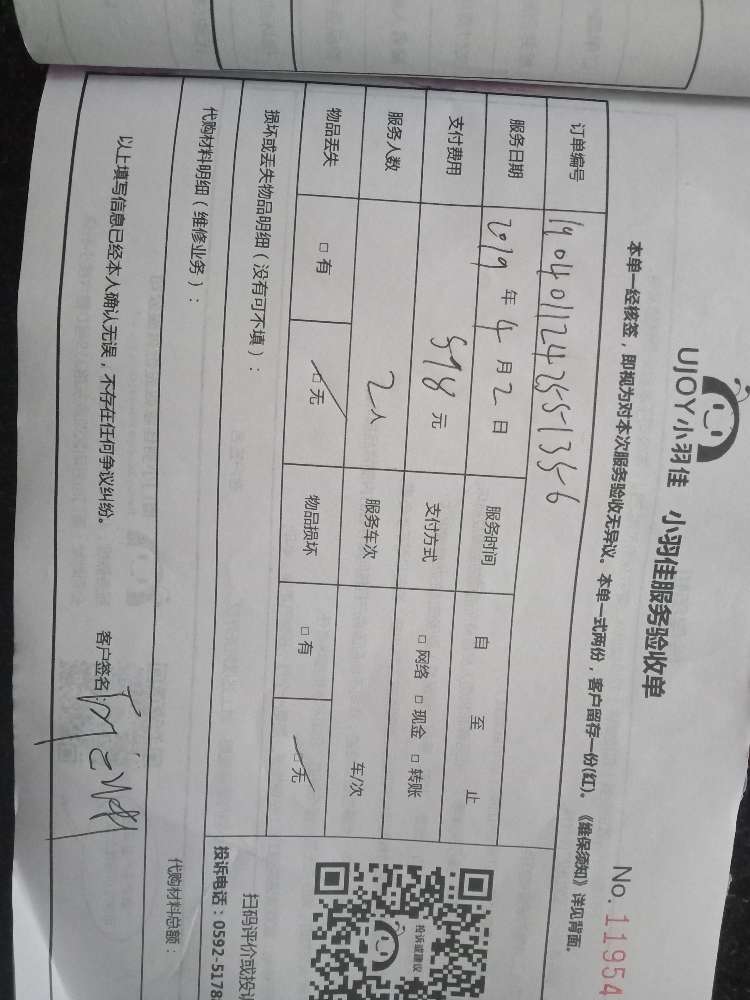 UJOY小羽佳 小羽佳服务验收单
No. 11954
本单一经核签，即视为对本次服务验收无异议。本单一式两份，客户留存一份(红)。《维保须知》详见背面。
订单编号 1904011242551356
服务日期 2019 年 4 月 2 日 服务时间 自 至 止
支付费用 598 元 支付方式 □ 网络 □ 现金 □ 转账
服务人数 2 人 服务车次 车/次
物品丢失 □ 有 □ 无 物品损坏 □ 有 □ 无
损坏或丢失物品明细（没有可不填）：
投诉或建议
扫码评价或投诉
投诉电话：0592-5178
代购材料明细（维修业务）：
代购材料总额：
以上填写信息已经本人确认无误，不存在任何争议纠纷。 客户签名：